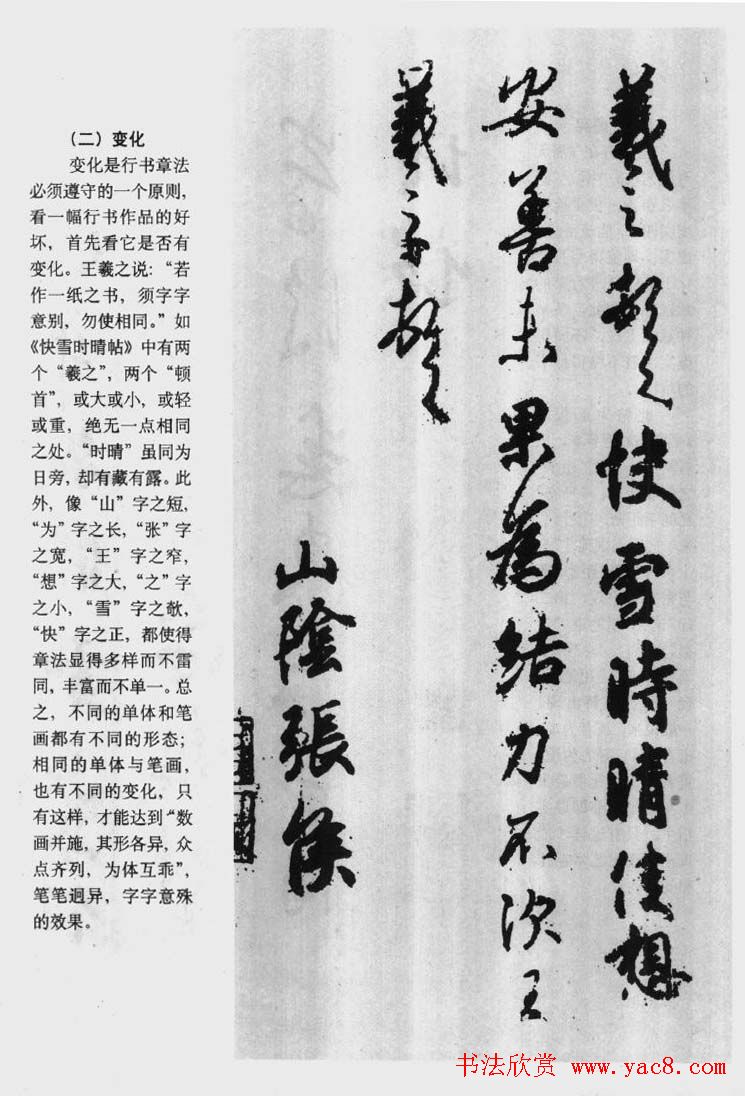 （二）变化
变化是行书章法
必须遵守的一个原则，
看一幅行书作品的好
坏，首先看它是否有
变化。王羲之说：“若
作一纸之书，须字字
意别，勿使相同。”如
《快雪时晴帖》中有两
个“羲之”，两个“顿
首”，或大或小，或轻
或重，绝无一点相同
之处。“时晴”虽同为
日旁，却有藏有露。此
外，像“山”字之短，
“为”字之长，“张”字
之宽，“王”字之窄，
“想”字之大，“之”字
之小，“雪”字之欹，
“快”字之正，都使得
章法显得多样而不雷
同，丰富而不单一。总
之，不同的单体和笔
画都有不同的形态；
相同的单体与笔画，
也有不同的变化，只
有这样，才能达到“数
画并施，其形各异，众
点齐列，为体互乖”，
笔笔迥异，字字意殊
的效果。
羲之頓首快雪時晴佳想
安善未果為結力不次王
羲之頓首
山陰張侯
书法欣赏 www.yac8.com